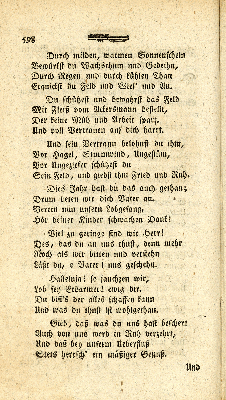 598
Durch milden, warmen Sonnenschein
Bewürkst du Wachsthum und Gedeihn,
Durch Regen und durch kühlen Thau
Erquickst du Feld und Wies' und Au.
Du schützest und bewahrst das Feld
Mit Fleiß vom Ackersmann bestellt,
Der keine Müh und Arbeit spart,
Und voll Vertrauen auf dich harrt.
Und sein Vertraun belohnst du ihm,
Vor Hagel, Sturmwind, Ungestüm,
Vor Ungeziefer schützest du
Sein Feld, und giebst ihm Fried und Ruh.
Dies Jahr hast du das auch gethan;
Drum beten wir dich Vater an.
Vereint nun unsern Lobgesang,
Hör deiner Kinder schwachen Dank!
Viel zu geringe sind wir Herr!
Des, das du an uns thust, denn mehr
Noch als wir bitten und verstehn
Läßt du, o Vater! uns geschehn.
Halleluja! so jauchzen wir,
Lob sey Erbarmer! ewig dir.
Du bist's der alles schaffen kann
Und was du thust ist wohlgethan.
Gieb, daß was du uns hast beschert
Auch von uns werd in Ruh verzehrt,
Und daß bey unserm Ueberfluß
Stets herrsch' ein mäßiger Genuß.
Und